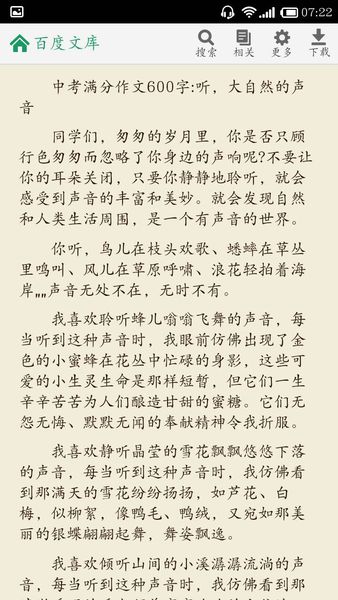 07:22
百度文库
搜索 相关 更多 下载
中考满分作文600字:听，大自然的声
音
同学们，匆匆的岁月里，你是否只顾
行色匆匆而忽略了你身边的声响呢?不要让
你的耳朵关闭，只要你静静地聆听，就会
感受到声音的丰富和美妙。就会发现自然
和人类生活周围，是一个有声音的世界。
你听，鸟儿在枝头欢歌、蟋蟀在草丛
里鸣叫、风儿在草原呼啸、浪花轻拍着海
岸„„声音无处不在，无时不有。
我喜欢聆听蜂儿嗡嗡飞舞的声音，每
当听到这种声音时，我眼前仿佛出现了金
色的小蜜蜂在花丛中忙碌的身影，这些可
爱的小生灵生命是那样短暂，但它们一生
辛辛苦苦为人们酿造甘甜的蜜糖。它们无
怨无悔、默默无闻的奉献精神令我折服。
我喜欢静听晶莹的雪花飘飘悠悠下落
的声音，每当听到这种声音时，我仿佛看
到那满天的雪花纷纷扬扬，如芦花、白
梅，似柳絮，像鸭毛、鸭绒，又宛如那美
丽的银蝶翩翩起舞，舞姿飘逸。
我喜欢倾听山间的小溪潺潺流淌的声
音，每当听到这种声音时，我仿佛看到那